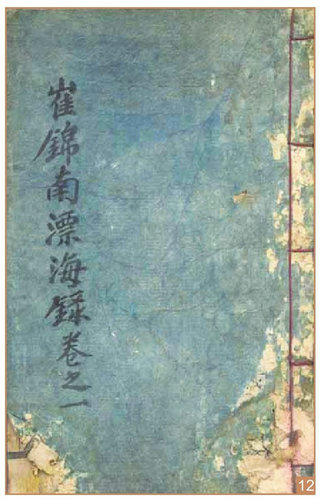 崔錦南漂海録卷之一
12